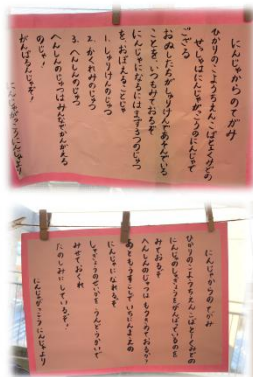 にんじゃからのてがみ
ひかりのこようちえんこばとぐみどの
せっしゃはにんじゃがっこうのにんじゃで
ござる
おぬしたちがしゅりけんであそんでいる
ことを、いつもみておるぞ
にんじゃになるにはまず3つのじゅつ
を、おぼえることじゃ
1、しゅりけんのじゅつ
2、かくれみのじゅつ
3、へんしんのじゅつ
へんしんのじゅつはみんなでかんがえる
のじゃ!
がんばるんじゃぞ!
にんじゃがっこうにんじゃより
にんじゃからのてがみ
ひかりのこようちえんこばとぐみどの
にんじゃのしゅぎょうをがんばっているのを
みておるぞ
へんしんのじゅつは
あともうすこしでいちにんまえの
にんじゃになれるぞ
しゅぎょうのせいかを、うんどうかいで
みせておくれ
たのしみにしているぞ!
にんじゃがっこうにんじゃより